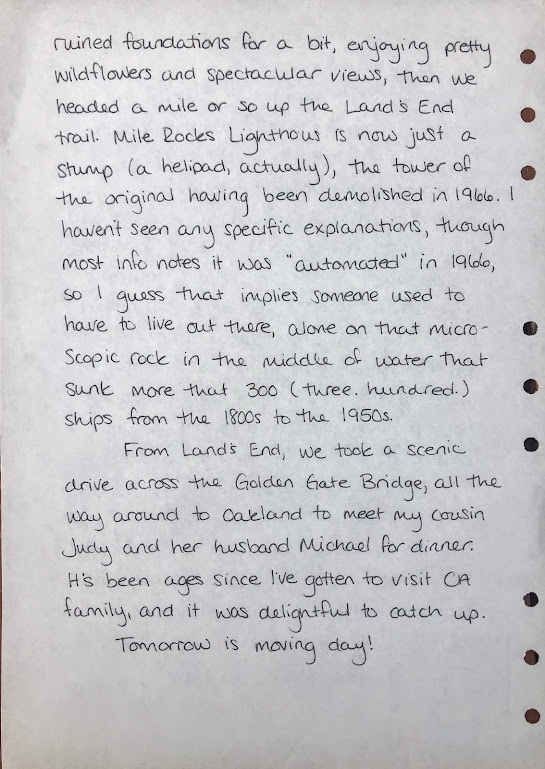 ruined foundations for a bit, enjoying pretty
wildflowers and spectacular views, then we
headed a mile or so up the Land's End
trail. Mile Rocks Lighthous is now just a
stump (a helipad, actually), the tower of
the original having been demolished in 1966. I
haven't seen any specific explanations, though
most info notes it was "automated" in 1966,
so I guess that implies someone used to
have to live out there, alone on that micro-
scopic rock in the middle of water that
sunk more that 300 (three. hundred.)
ships from the 1800s to the 1950s.
From Land's End, we took a scenic
drive across the Golden Gate Bridge, all the
way around to Oakland to meet my cousin
Judy and her husband Michael for dinner.
It's been ages since I've gotten to visit CA
family, and it was delightful to catch up.
Tomorrow is moving day!